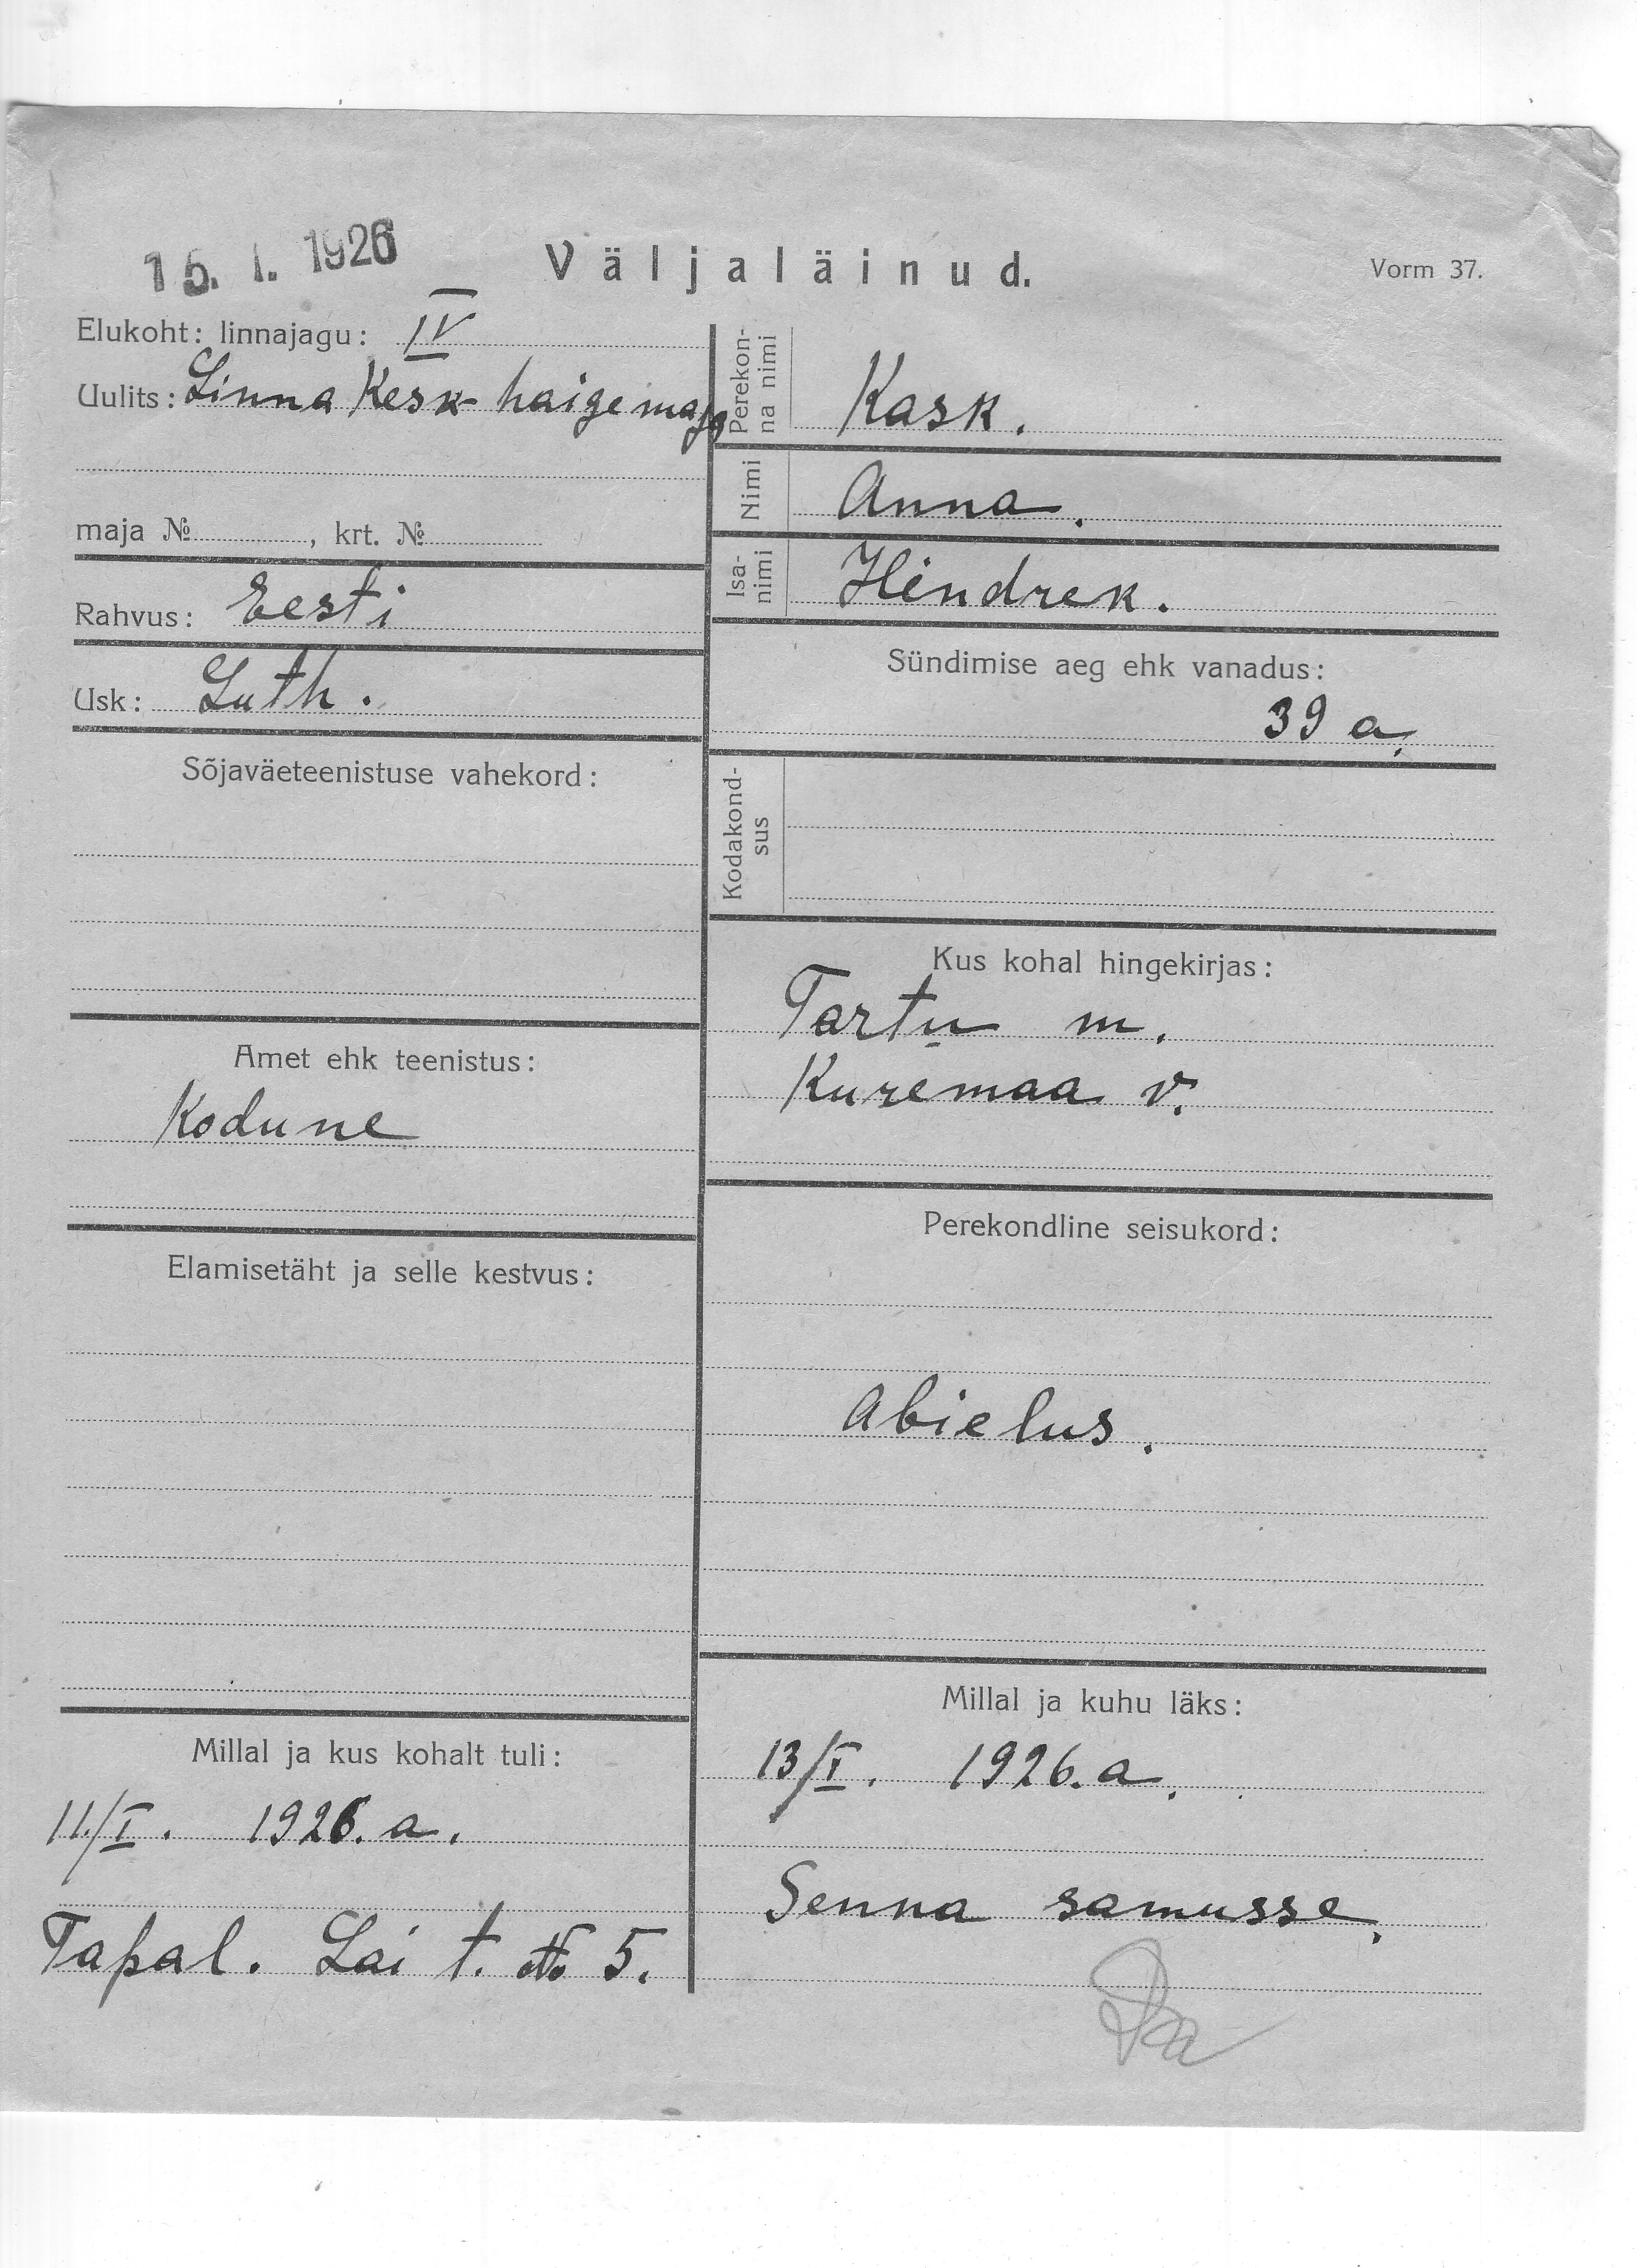 15. I. 1926
Väljaläinud.
Vorm 37.
Elukoht: linnajagu: IV
Uulits: Linna Kesk-haigemaja
maja № , krt. №
Rahvus: Eesti
Usk: Luth.
Sõjaväeteenistuse vahekord:
Amet ehk teenistus:
Kodune
Elamisetäht ja selle kestvus:
Millal ja kus kohalt tuli:
11./I. 1926. a.
Tapal. Lai t. № 5.
Perekon-
na nimi
Kask.
Nimi
Anna.
Isa-
nimi
Hindrek.
Sündimise aeg ehk vanadus:
39 a.
Kodakond-
sus
Kus kohal hingekirjas:
Tartu m.
Kuremaa v.
Perekondline seisukord:
Abielus.
Millal ja kuhu läks:
13/I. 1926. a.
Senna samusse.